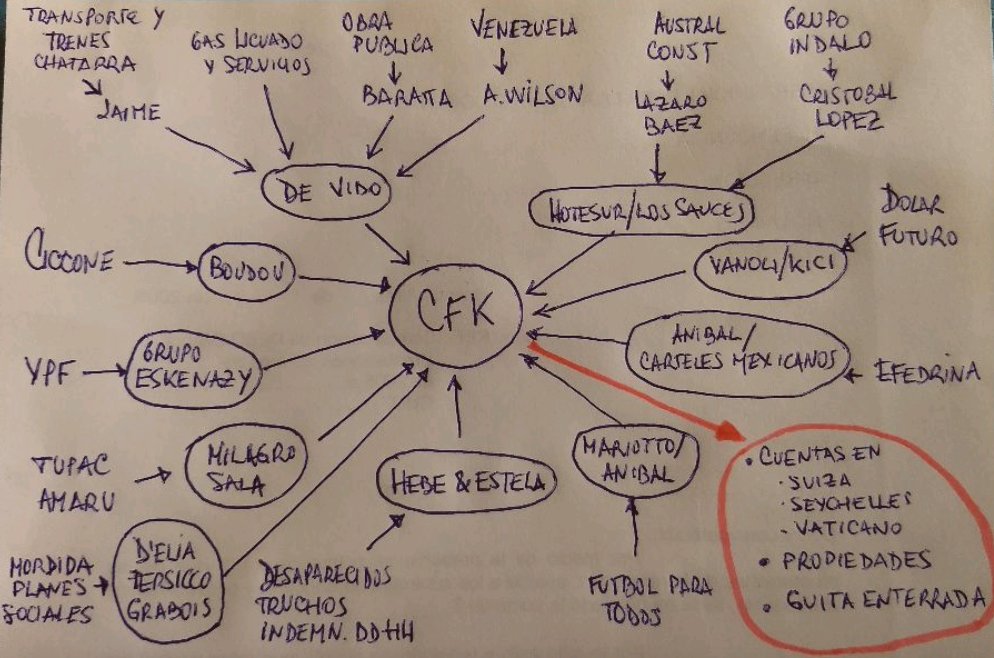 TRANSPORTE Y
TRENES
CHATARRA
JAIME
GAS LICUADO
Y SERVICIOS
OBRA
PUBLICA
BARATTA
VENEZUELA
A. WILSON
AUSTRAL
CONST
LAZARO
BAEZ
GRUPO
INDALO
CRISTOBAL
LOPEZ
DE VIDO
HOTESUR/LOS SAUCES
DOLAR
FUTURO
VANOLI/KICI
CICCONE
BOUDOU
CFK
ANIBAL/
CARTELES MEXICANOS
EFEDRINA
YPF
GRUPO
ESKENAZY
TUPAC
AMARU
MILAGRO
SALA
HEBE & ESTELA
MARIOTTO/
ANIBAL
• CUENTAS EN
· SUIZA
· SEYCHELLES
- VATICANO
• PROPIEDADES
• GUITA ENTERRADA
MORDIDA
PLANES
SOCIALES
D'ELIA
PERSICCO
GRABOIS
DESAPARECIDOS
TRUCHOS
INDEMN. DDHH
FUTBOL PARA
TODOS